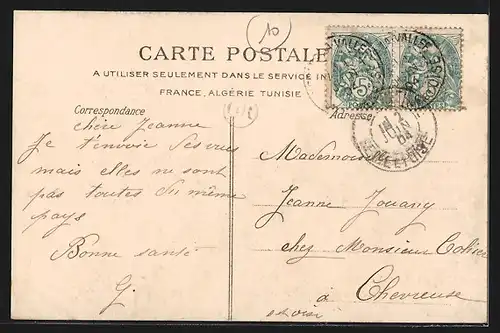 10
CARTE POSTALE
A UTILISER SEULEMENT DANS LE SERVICE IN
FRANCE, ALGÉRIE TUNISIE
Correspondance
Adresse
chère Jeanne
Je t'envoie des vues
mais elles ne sont
pas toutes du même
pays
Bonne santé
G.
Mademoi
Jeanne Jouany
chez Monsieur Collier
à Chevreuse
et oise